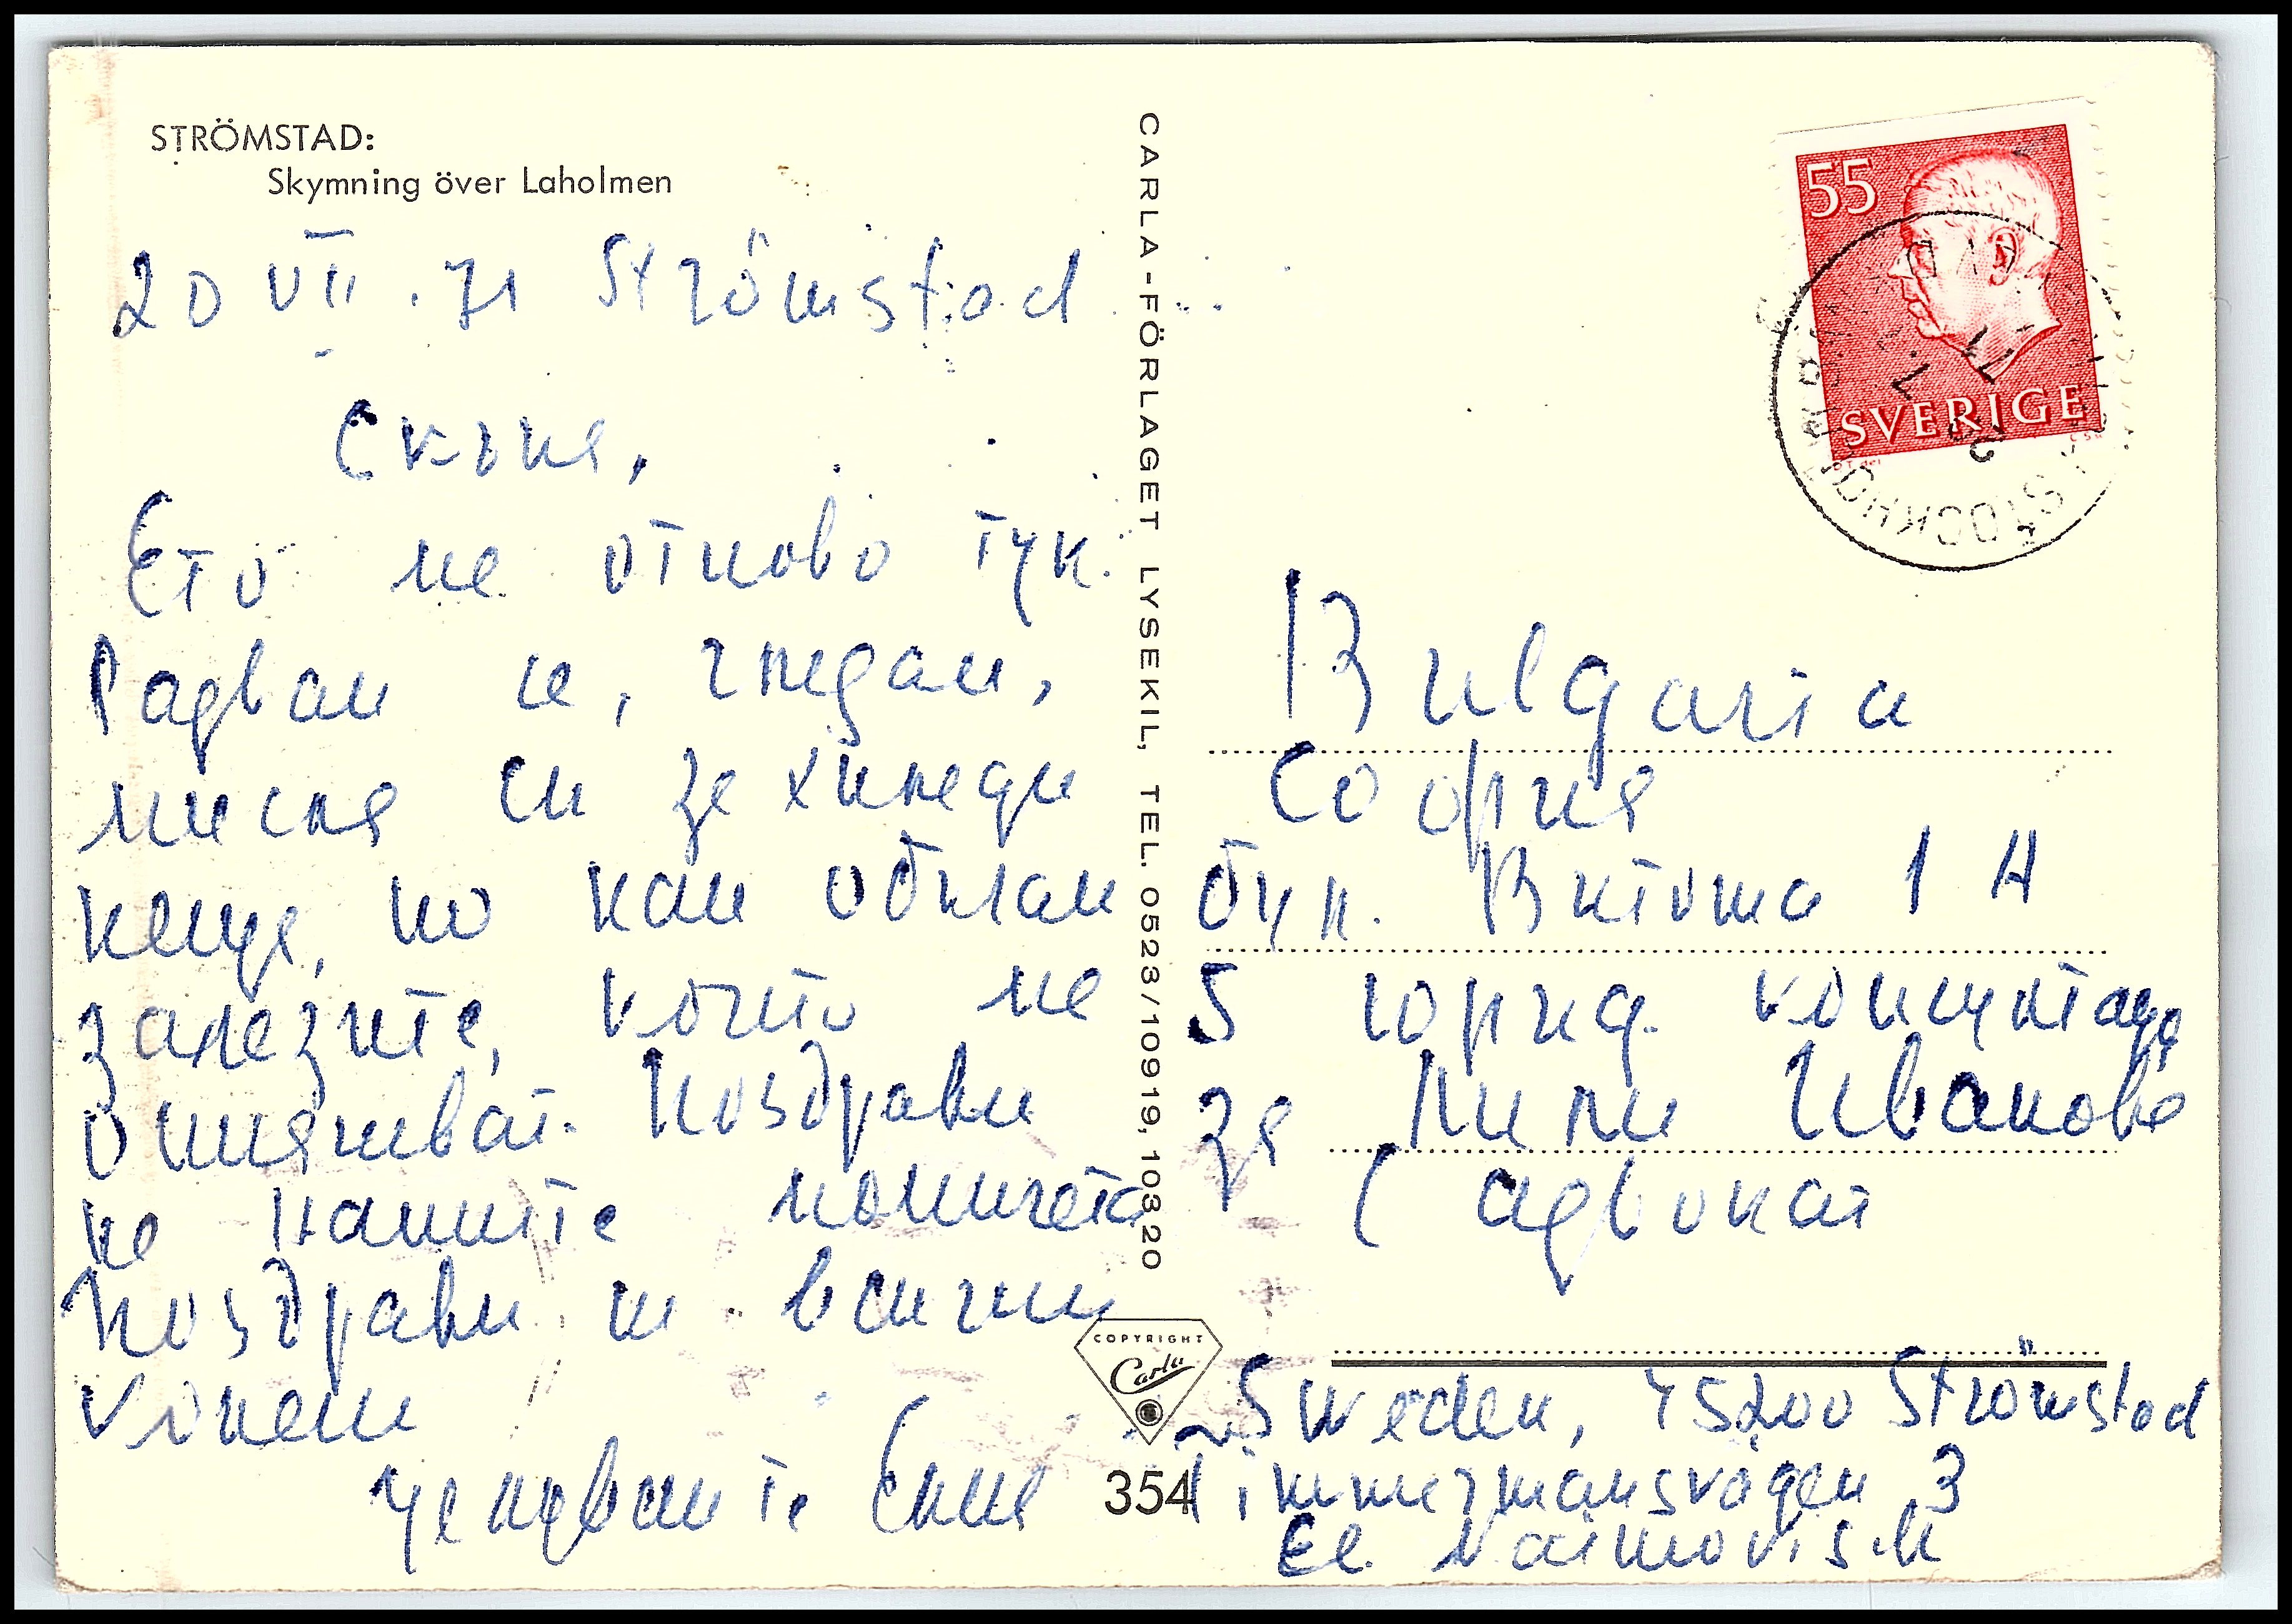 STRÖMSTAD:
Skymning över Laholmen
20 VII . 71 Strömstad
Скъпа,
Ето ме отново тук.
Радвам се, гледам,
мисля си за хиляди
неща, но как обичам
залезите, които ме
Поздрави
на Нашите момичета
Поздрави и всички
колеги
CARLA-FÖRLAGET LYSEKIL, TEL. 0523/10919, 10320
COPYRIGHT
Carla
354
55
SVERIGE
STOCKHOLM
Bulgaria
София
бул. Витоша 1 А
5 юрид. консултация
за Лили Иванова
( адвокат
Sweden, 45200 Strömstad
Timmermansvägen 3